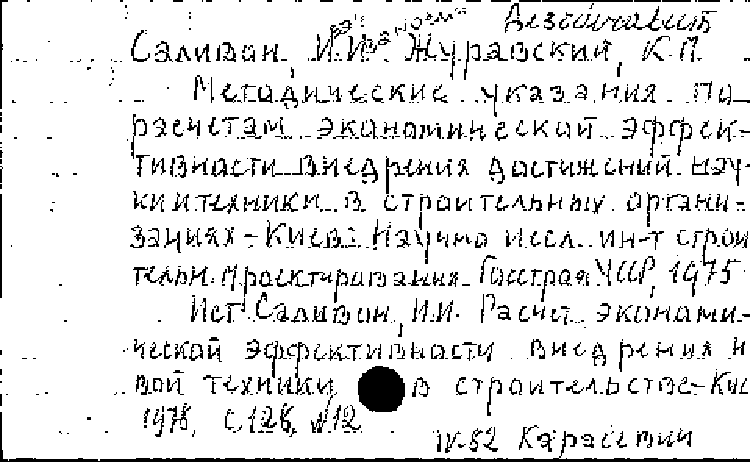 Саливон, И.И. Журавский, К.П.
Методические указания по
расчетам экономической эффек-
тивности внедрения достижений нау-
ки и техники в строительных органи-
зациях - Киев: Научно иссл. ин-т строи
тельн. проектирования Госстроя УССР, 1975
Ист. Саливон, И.И. Расчет экономи-
ческой эффективности внедрения н
вой техники в строительстве - Кие
1978, с 128, №12
IV-82 Карастин